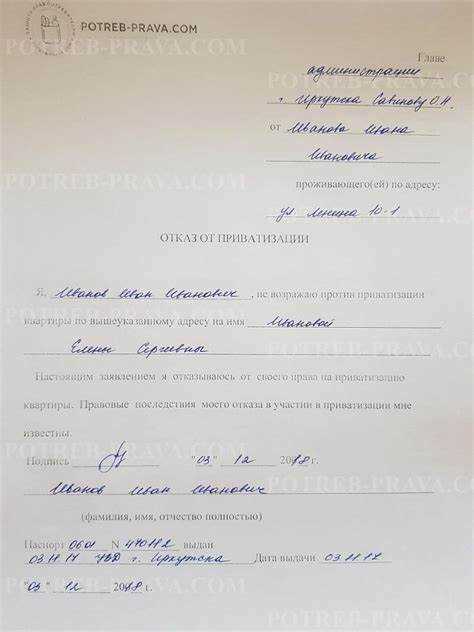 POTREB-PRAVA.COM
Главе
администрации
г Иркутска Савинову О.Н.
от Иванова Ивана
Ивановича
проживающего(ей) по адресу:
ул Ленина 10-1
ОТКАЗ ОТ ПРИВАТИЗАЦИИ
Я, Иванов Иван Иванович, не возражаю против приватизации
квартиры по вышеуказанному адресу на имя Ивановой
Елены Сергеевны
Настоящим заявлением я отказываюсь от своего права на приватизацию
квартиры. Правовые последствия моего отказа в участии в приватизации мне
известны.
Подпись "03" 12 2018 г.
Иванов Иван Иванович
(фамилия, имя, отчество полностью)
Паспорт 0601 N 470112 выдан
03.11.17 г. Иркутска Дата выдачи 03.11.17
"03" 12 2018 г.